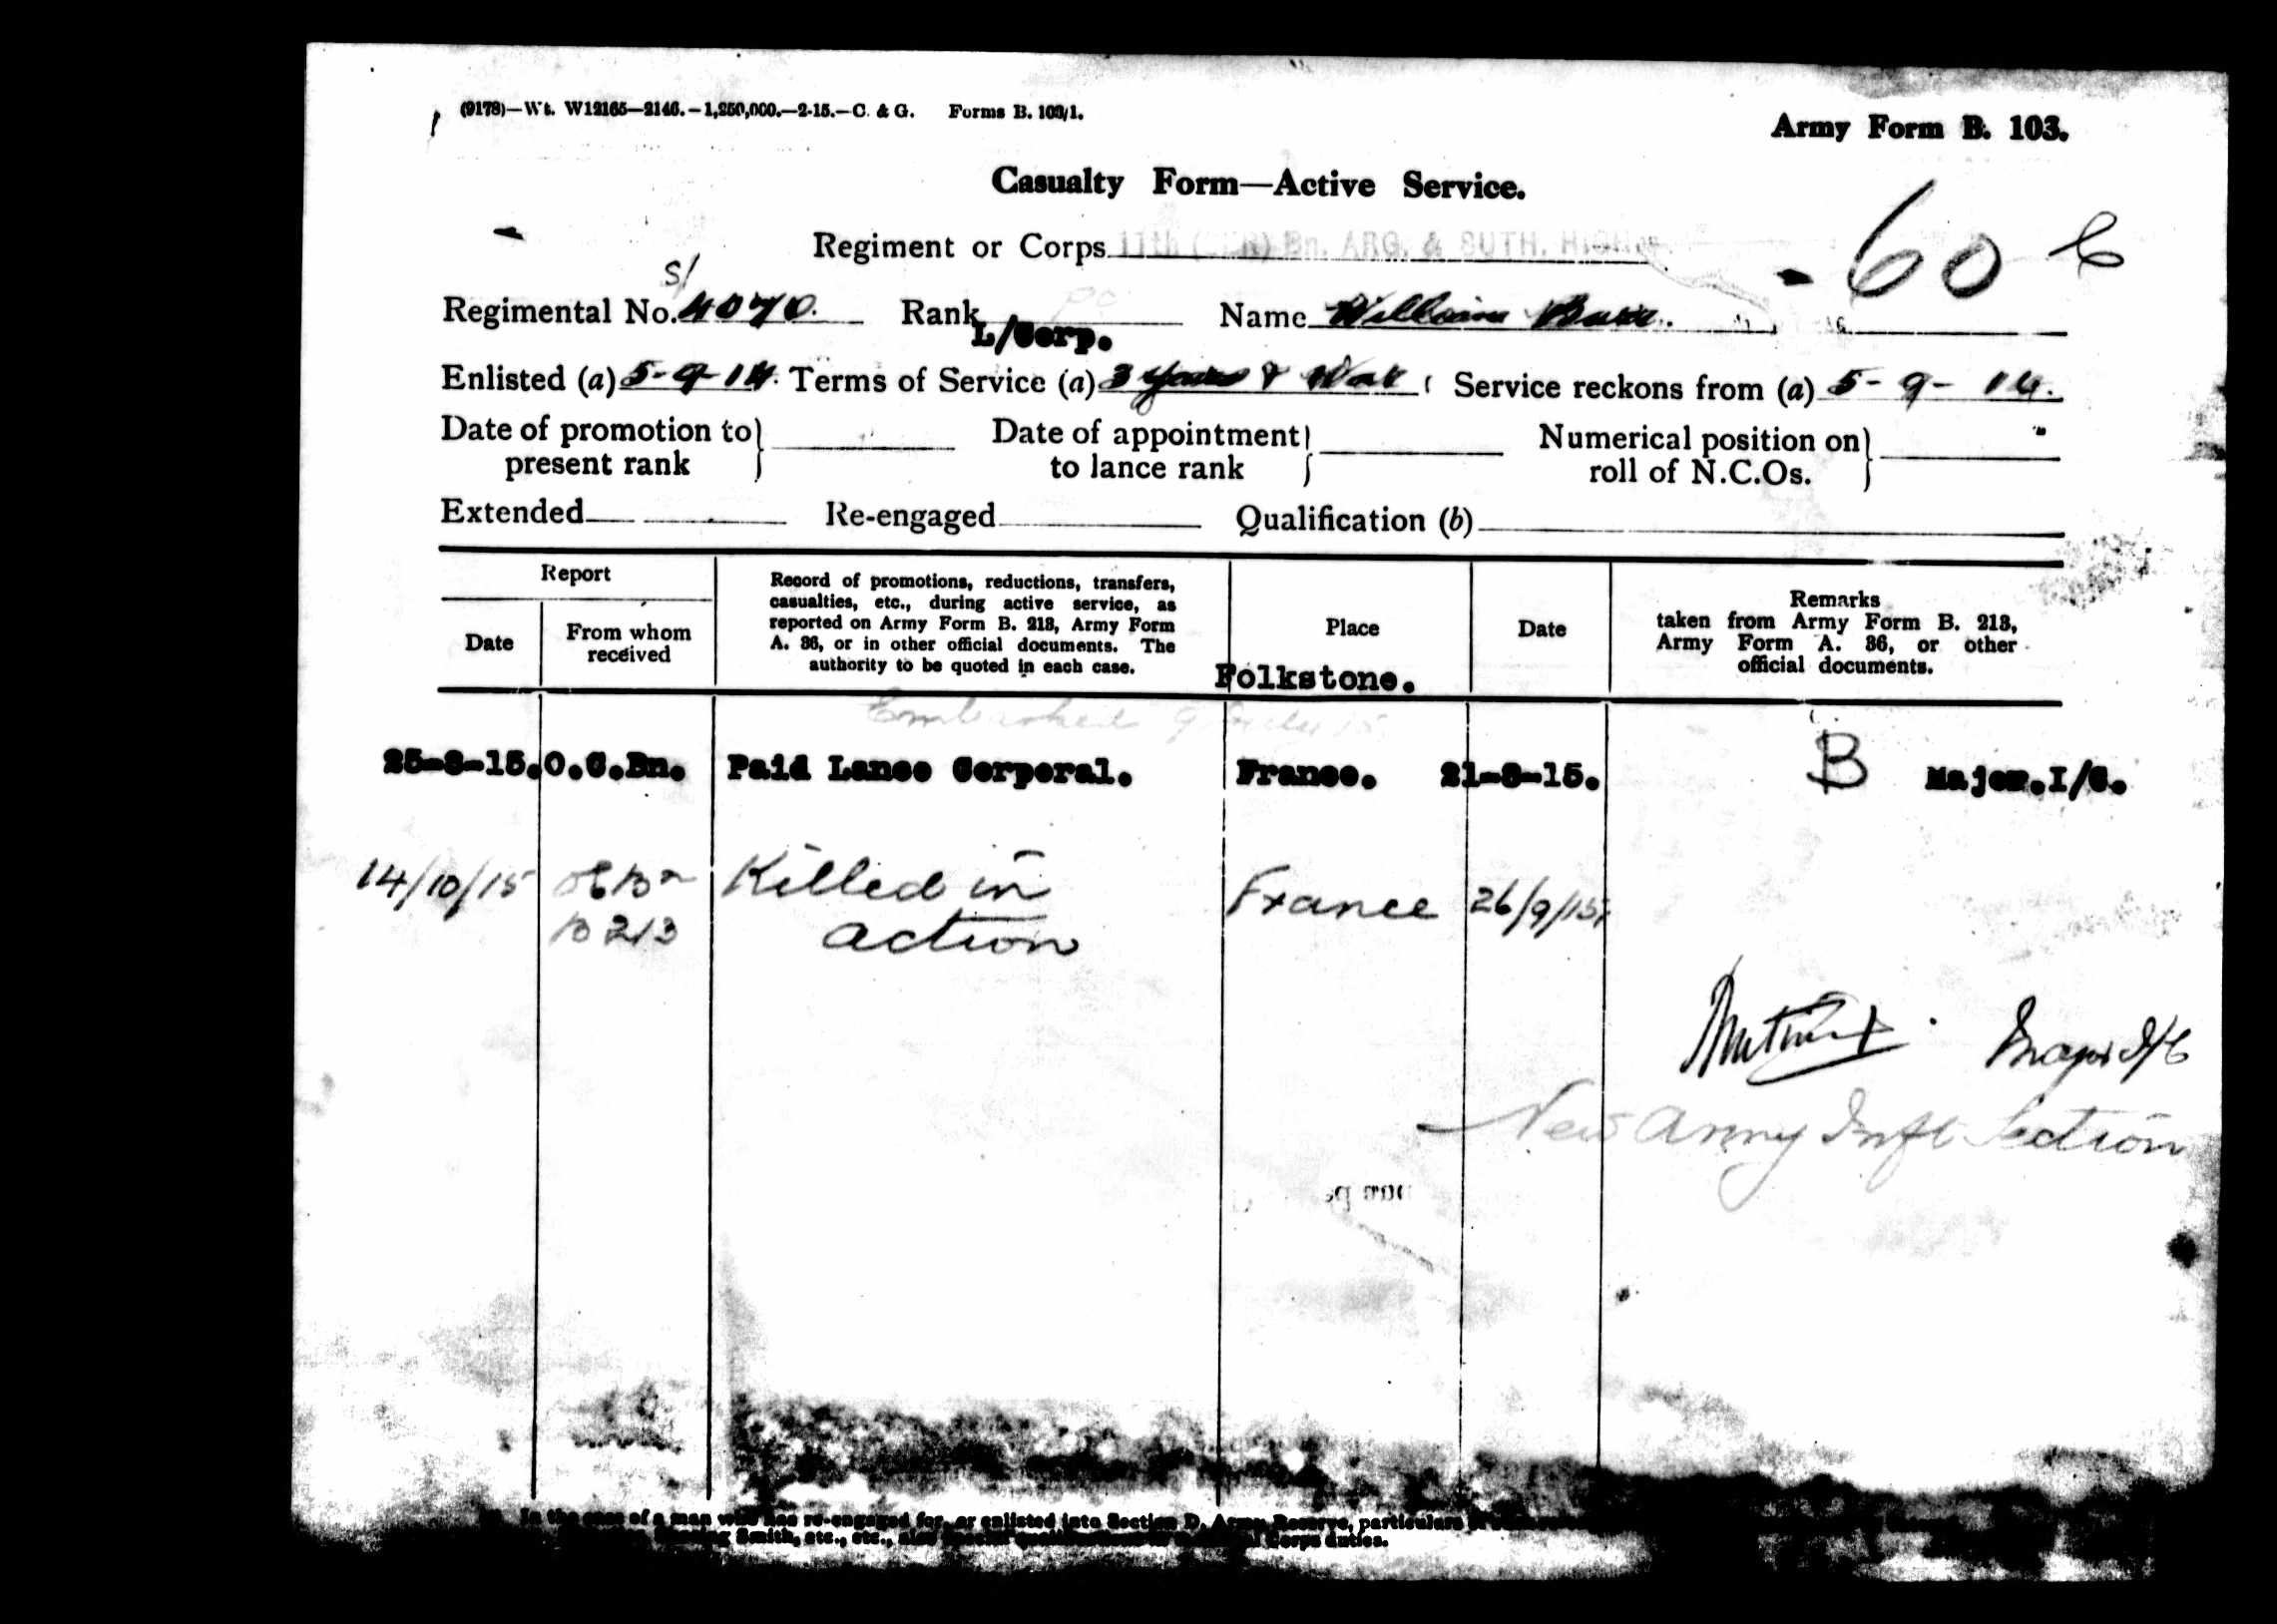 (9178)—Wt. W12165—2146.—1,250,000.—2-15.—C. & G. Forms B. 103/1.
Army Form B. 103.
Casualty Form—Active Service.
60
Regiment or Corps 11th (SER) Bn. ARG. & SUTH. HIGHRS
S/
Regimental No. 4070. Rank Name William
L/Corp.
Enlisted (a) 5-9-14. Terms of Service (a) 3 years & War Service reckons from (a) 5-9-14.
Date of promotion to present rank } Date of appointment to lance rank } Numerical position on roll of N.C.Os. }
Extended Re-engaged Qualification (b)
Report
Date
From whom received
Record of promotions, reductions, transfers,
casualties, etc., during active service, as
reported on Army Form B. 213, Army Form
A. 36, or in other official documents. The
authority to be quoted in each case.
Place
Date
Remarks
taken from Army Form B. 213,
Army Form A. 36, or other
official documents.
Folkstone.
Embarked 9 July 15
25-8-15. O.C.Bn. Paid Lance Corporal. France. 21-8-15. B Major.I/C.
14/10/15 OC Bn Killed in France 26/9/15
B 213 action
Major I/C
New Army Inft Section
In the case of a man who has re-engaged for, or enlisted into Section D, Army Reserve, particulars
Smith, etc., etc., also Corps duties.